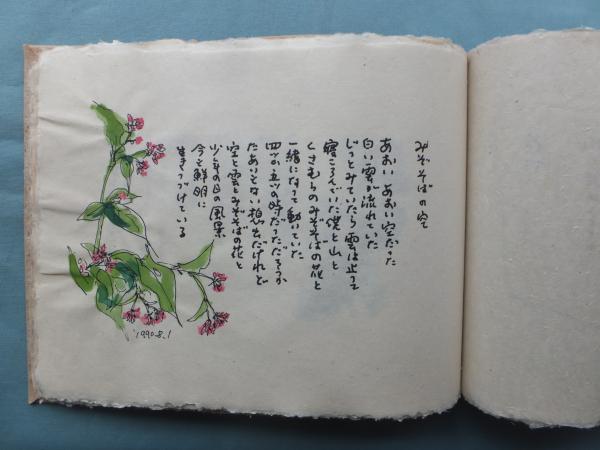 みぞそばの空
あおい あおい空だった
白い雲が流れていた
じっとみていたら雲は止って
寝ころんでいた僕と山と
くさむらのみぞそばの花と
一緒になって動いていた
四ツか五ツの時だっただろうか
たあいもない想い出だけれど
空と雲とみぞそばの花と
少年の日の風景
今も鮮明に
生きつづけている
1990.8.1